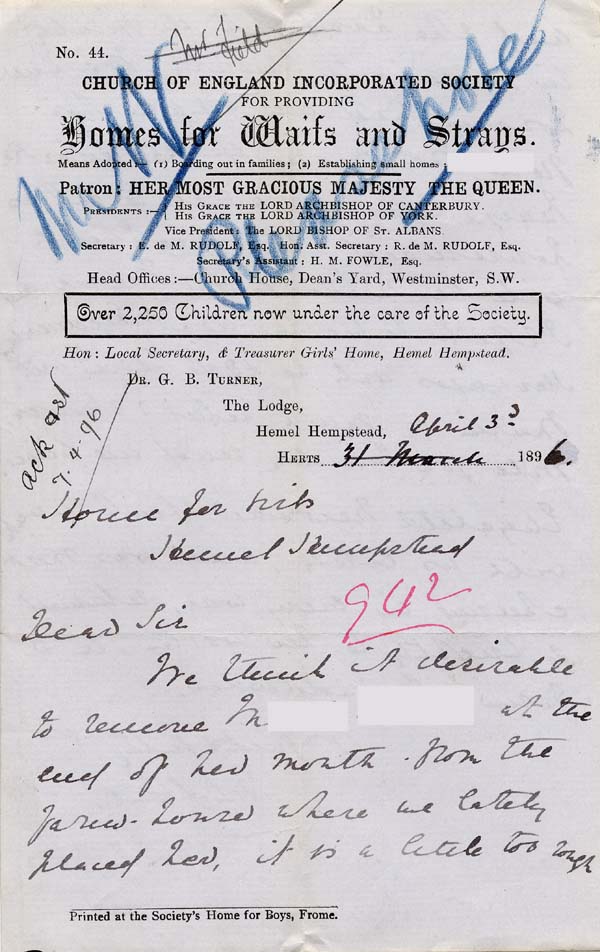 No. 44.
Mr Field
CHURCH OF ENGLAND INCORPORATED SOCIETY
FOR PROVIDING
Homes for Waifs and Strays.
Means Adopted:— (1) Boarding out in families; (2) Establishing small homes;
Patron: HER MOST GRACIOUS MAJESTY THE QUEEN.
PRESIDENTS:— { HIS GRACE THE LORD ARCHBISHOP OF CANTERBURY.
HIS GRACE THE LORD ARCHBISHOP OF YORK.
Vice President: THE LORD BISHOP OF ST. ALBANS.
Secretary: E. de M. RUDOLF, Esq. Hon. Asst. Secretary: R. de M. RUDOLF, Esq.
Secretary's Assistant: H. M. FOWLE, Esq.
Head Offices:—Church House, Dean's Yard, Westminster, S.W.
Over 2,250 Children now under the care of the Society.
Hon: Local Secretary, & Treasurer Girls' Home, Hemel Hempstead.
DR. G. B. TURNER,
The Lodge,
Hemel Hempstead, April 3d
HERTS 31 March 1896.
ack
7.4.96
Home for Girls
Hemel Hempstead
942
Dear Sir
We think it desirable
to remove M at the
end of her month from the
farm-house where we lately
placed her, it is a little too rough
Printed at the Society's Home for Boys, Frome.